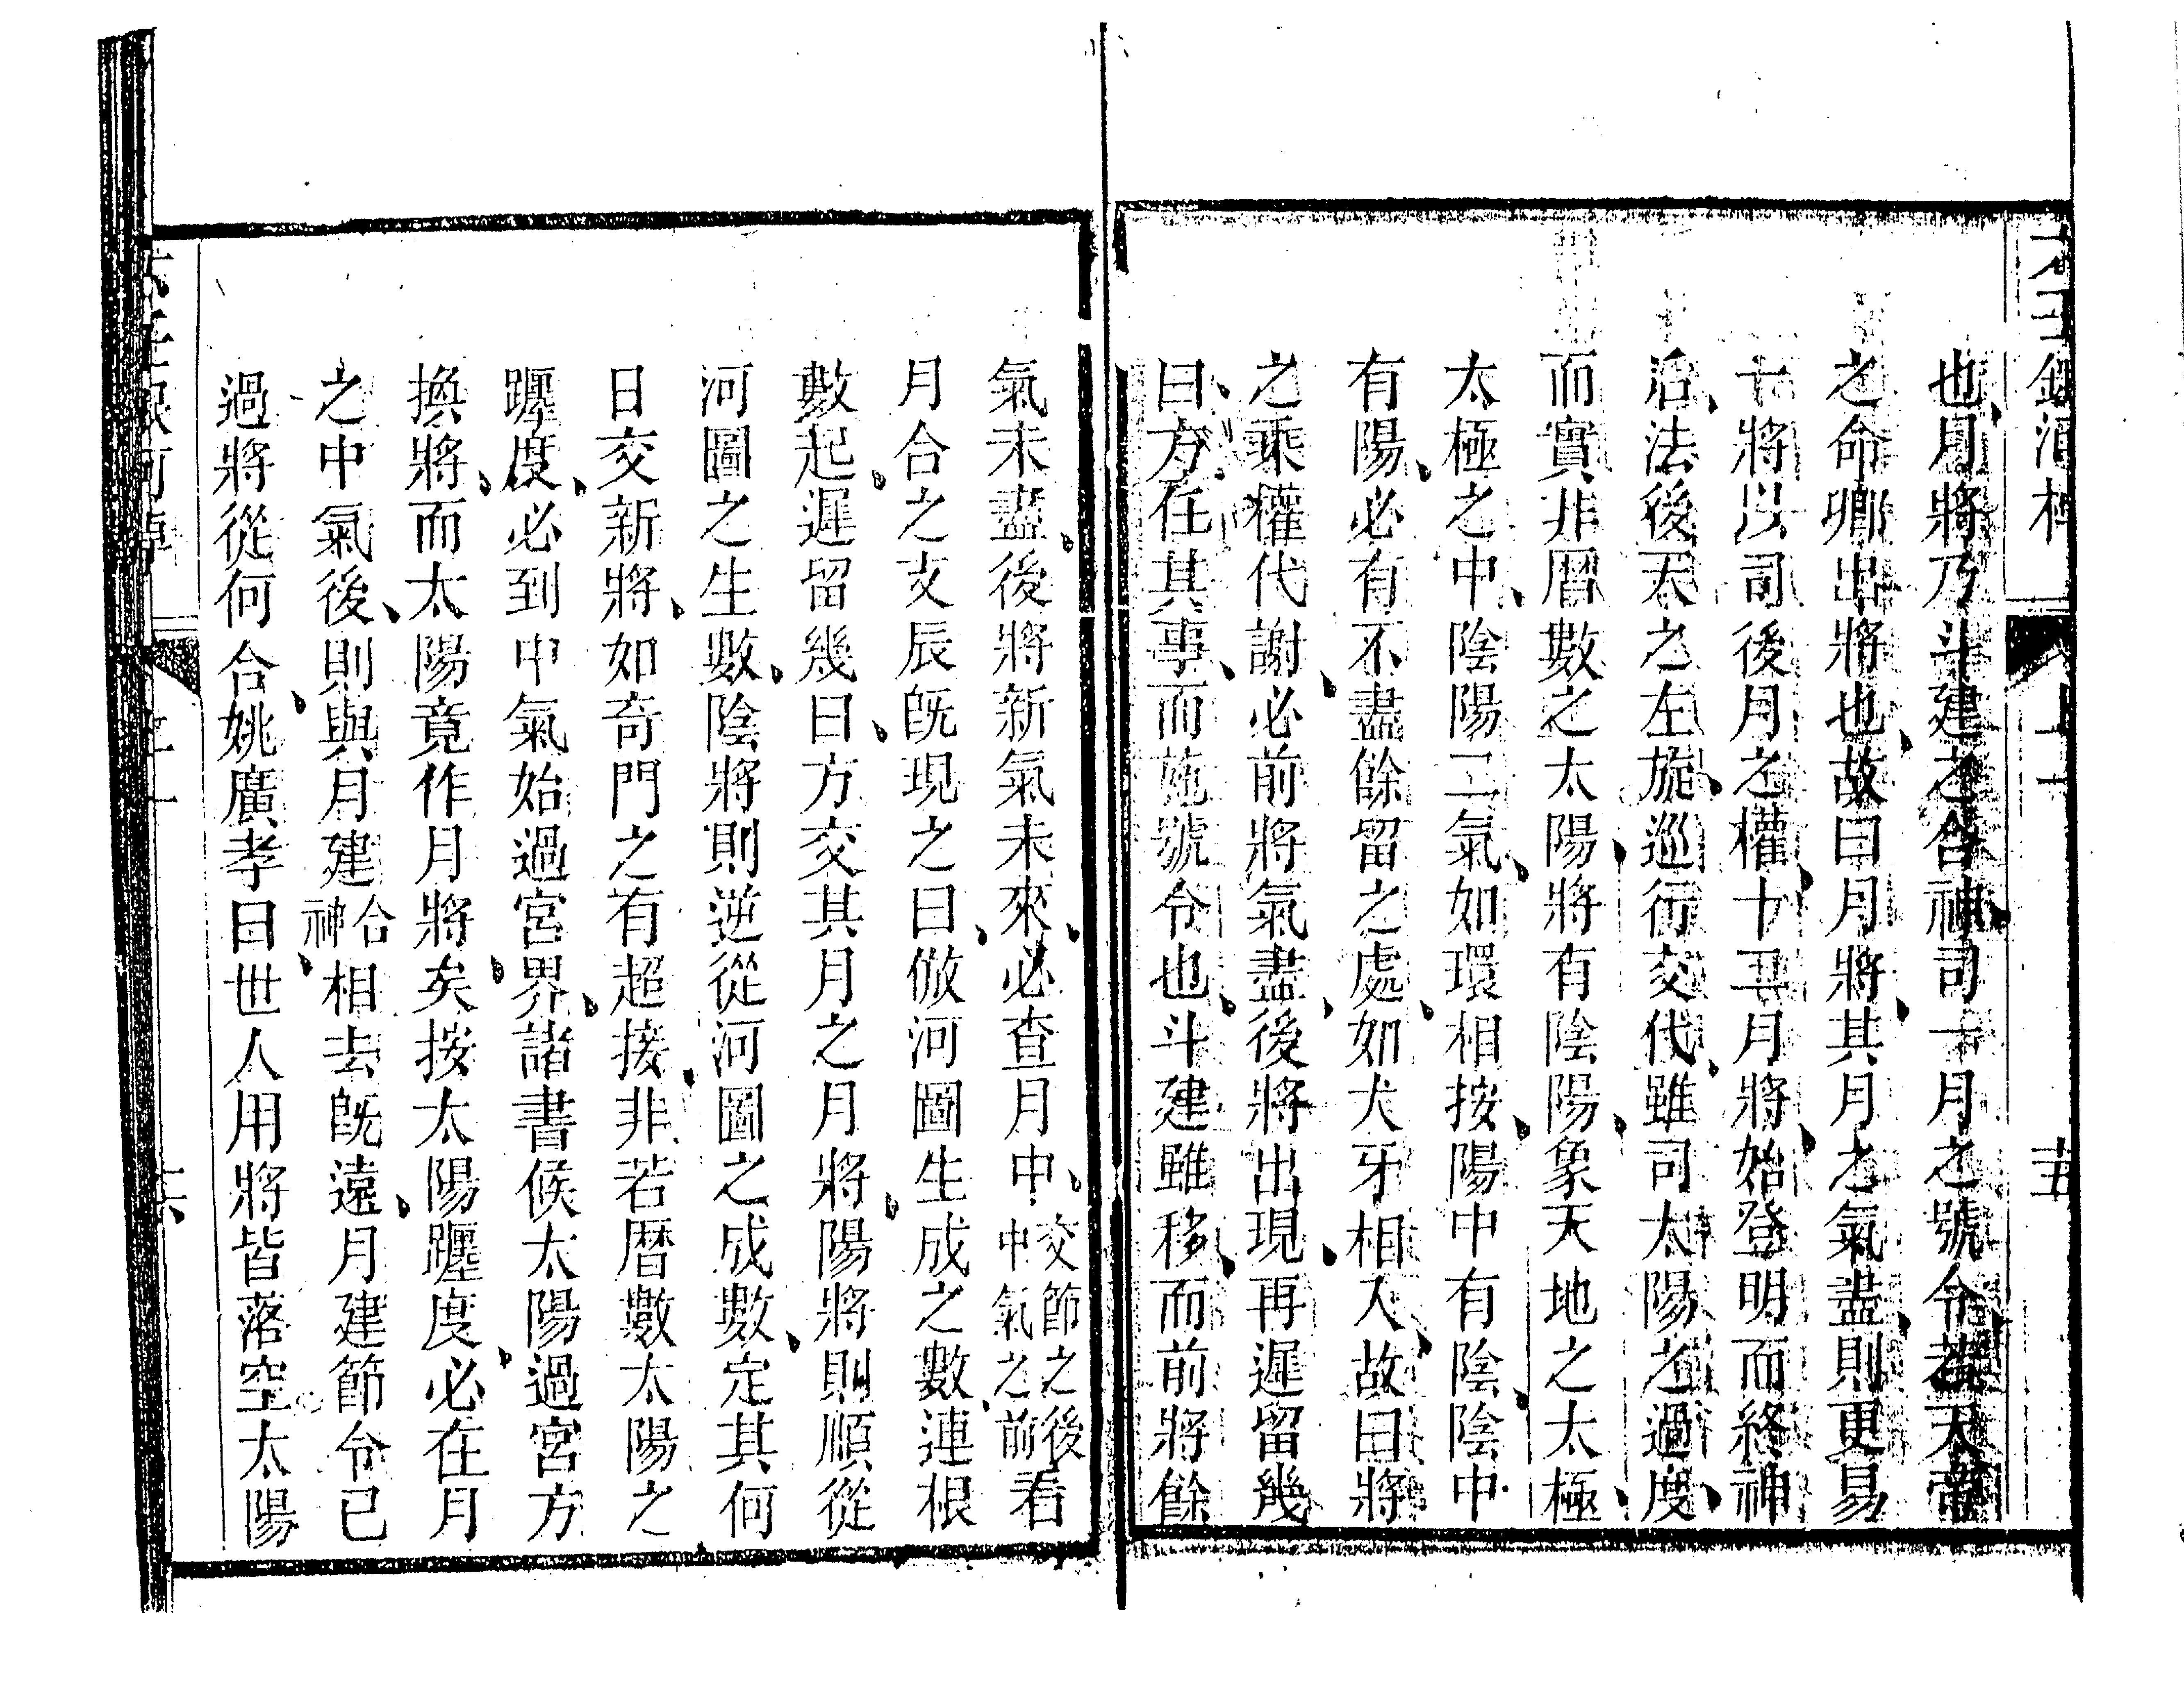 也月將乃斗建之合神司一月之號令若天帝
之命卿出將也故曰月將其月之氣盡則更易
一將以司後月之權十二月將始登明而終神
后法後天之左旋巡行交代雖司太陽之過度
而實非曆數之太陽將有陰陽象天地之太極
太極之中陰陽二氣如環相按陽中有陰陰中
有陽必有不盡餘留之處如犬牙相入故曰將
之乘權代謝必前將氣盡後將出現再遲留幾
日方任其事而施號令也斗建雖移而前將餘
氣未盡後將新氣未來必查月中交節之後中氣之前看
月合之支辰旣現之日倣河圖生成之數連根
數起遲留幾日方交其月之月將陽將則順從
河圖之生數陰將則逆從河圖之成數定其何
日交新將如奇門之有超接非若曆數太陽之
躔度必到中氣始過宮界諸書候太陽過宮方
換將而太陽竟作月將矣按太陽躔度必在月
之中氣後則與月建合神相去旣遠月建節令已
過將從何合姚廣孝曰世人用將皆落空太陽